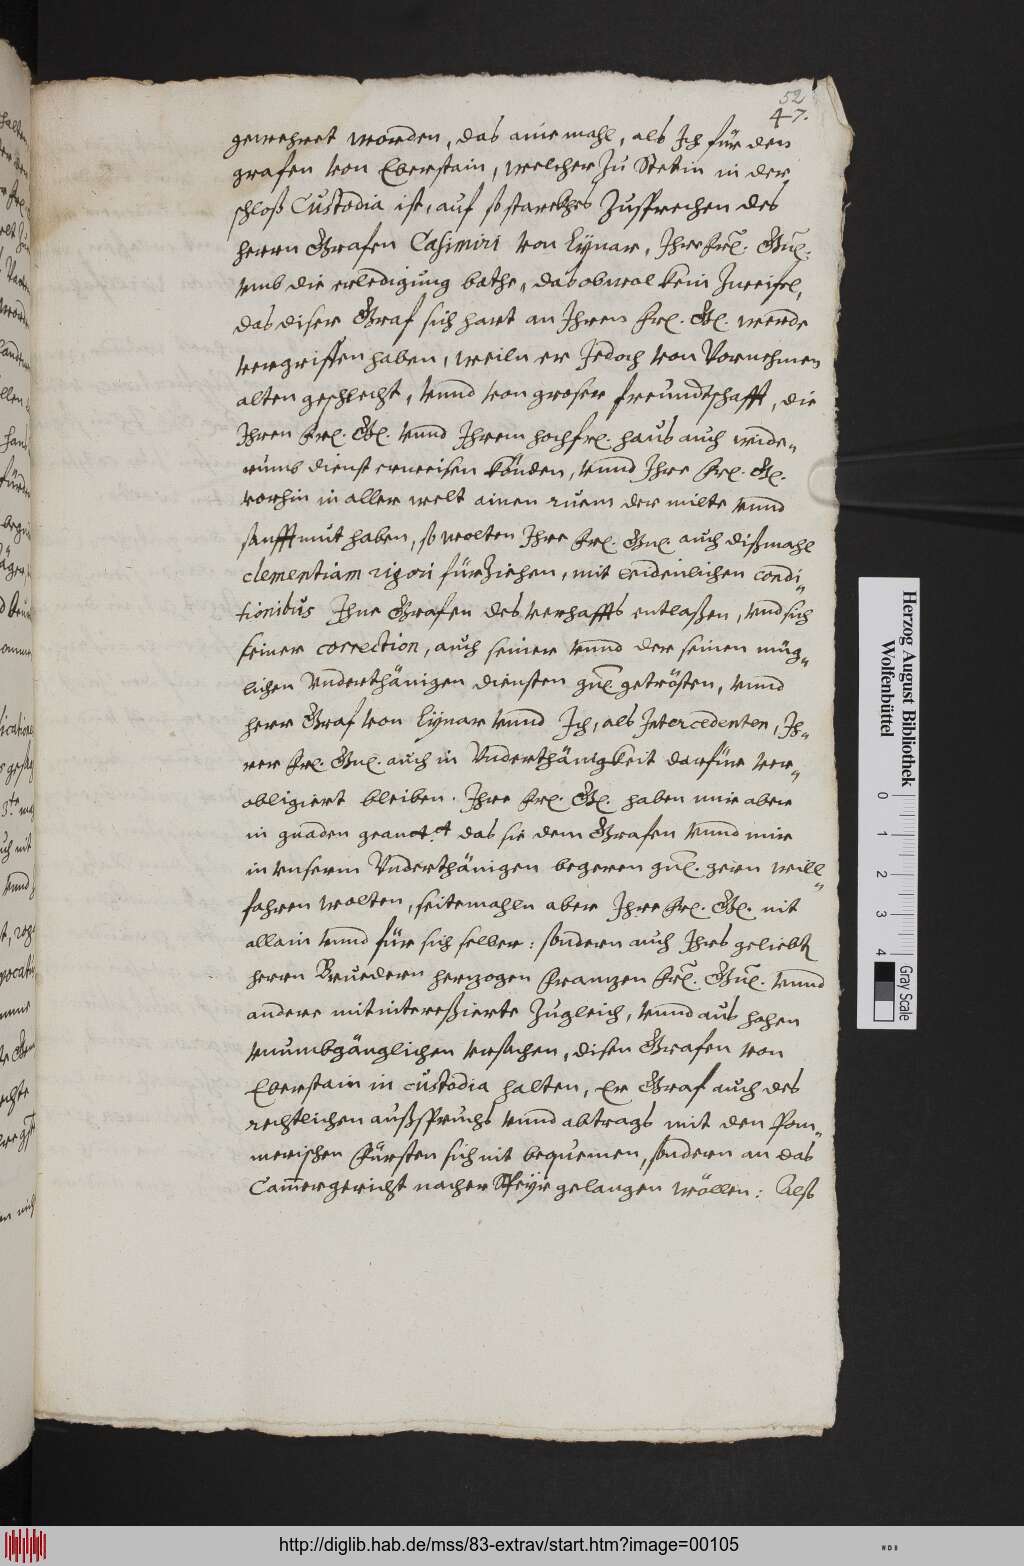 52
47.
gewehret worden, das aine mahl, als Ich für den
grafen von Eberstain, welcher Zu Stetin in der
schloß Custodia ist, auf so starckhes Zusprechen des
herrn Grafen Casimiri von Lÿnar, Ihre frl. Gnl.
umb die erledigung bathe, das obwol kein Zweifel,
das diser Graf sich hart an Ihren frl. G. werde
vergriffen haben, weiln er Jedoch von Vornehmen
alten geschlecht, vnnd von groser freundtschafft, die
Ihren frl. G. vnnd Ihrem hochfrl. haus auch wide„
rumb dienst erweisen könden, vnnd Ihre frl. G.
vorhin in aller welt ainen ruem der milte vnnd
sanfftmut haben, so wolten Ihre frl. Gnl. auch dißmahl
clementiam rigori fürZiehen, mit leidenlichen condi„
tionibus Ihne Grafen des verhaffts entlaßen, vnd sich
seiner correction, auch seiner vnnd der seinen müg„
lichen Vnderthänigen diensten gnl. getrösten, vnnd
herr Graf von Lÿnar vnnd Ich, als Intercedenten, Ih„
rer frl. Gnl. auch in Vnderthänigkeit darfür ver„
obligiert bleiben. Ihre frl. G. haben mir aber
in gnaden geantt. das sie dem Grafen vnnd mir
in vnserm Vnderthänigen begeren gnl. gern will„
fahren wolten, seitemahln aber Ihre frl. G. nit
allain vnnd für sich selber: sondern auch Ihrs geliebt
herrn Bruedern herzogen Frantzen frl. Gnl. vnnd
andere mitintereßierte Zugleich, vnnd aus hohen
vnumbgänglichen vrsachen, disen Grafen von
Eberstain in custodia halten, Er Graf auch des
rechtlichen außspruchs vnnd abtrags mit den Pom„
merischen Fürsten sich nit bequemen, sondern an das
Cam̄ergericht nacher Speÿr gelangen wöllen: Alß
Herzog August Bibliothek
Wolfenbüttel
0 1 2 3 4
Gray Scale
http://diglib.hab.de/mss/83-extrav/start.htm?image=00105